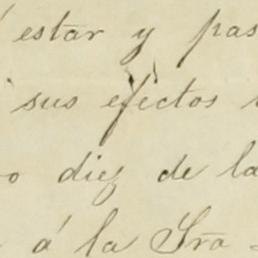 estar y pas
sus efectos
diez de la
á la Sra